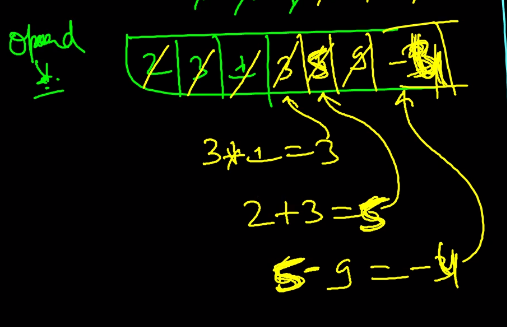 Operand
2 3 1 3 5 9 -4
3*1=3
2+3=5
5-9=-4